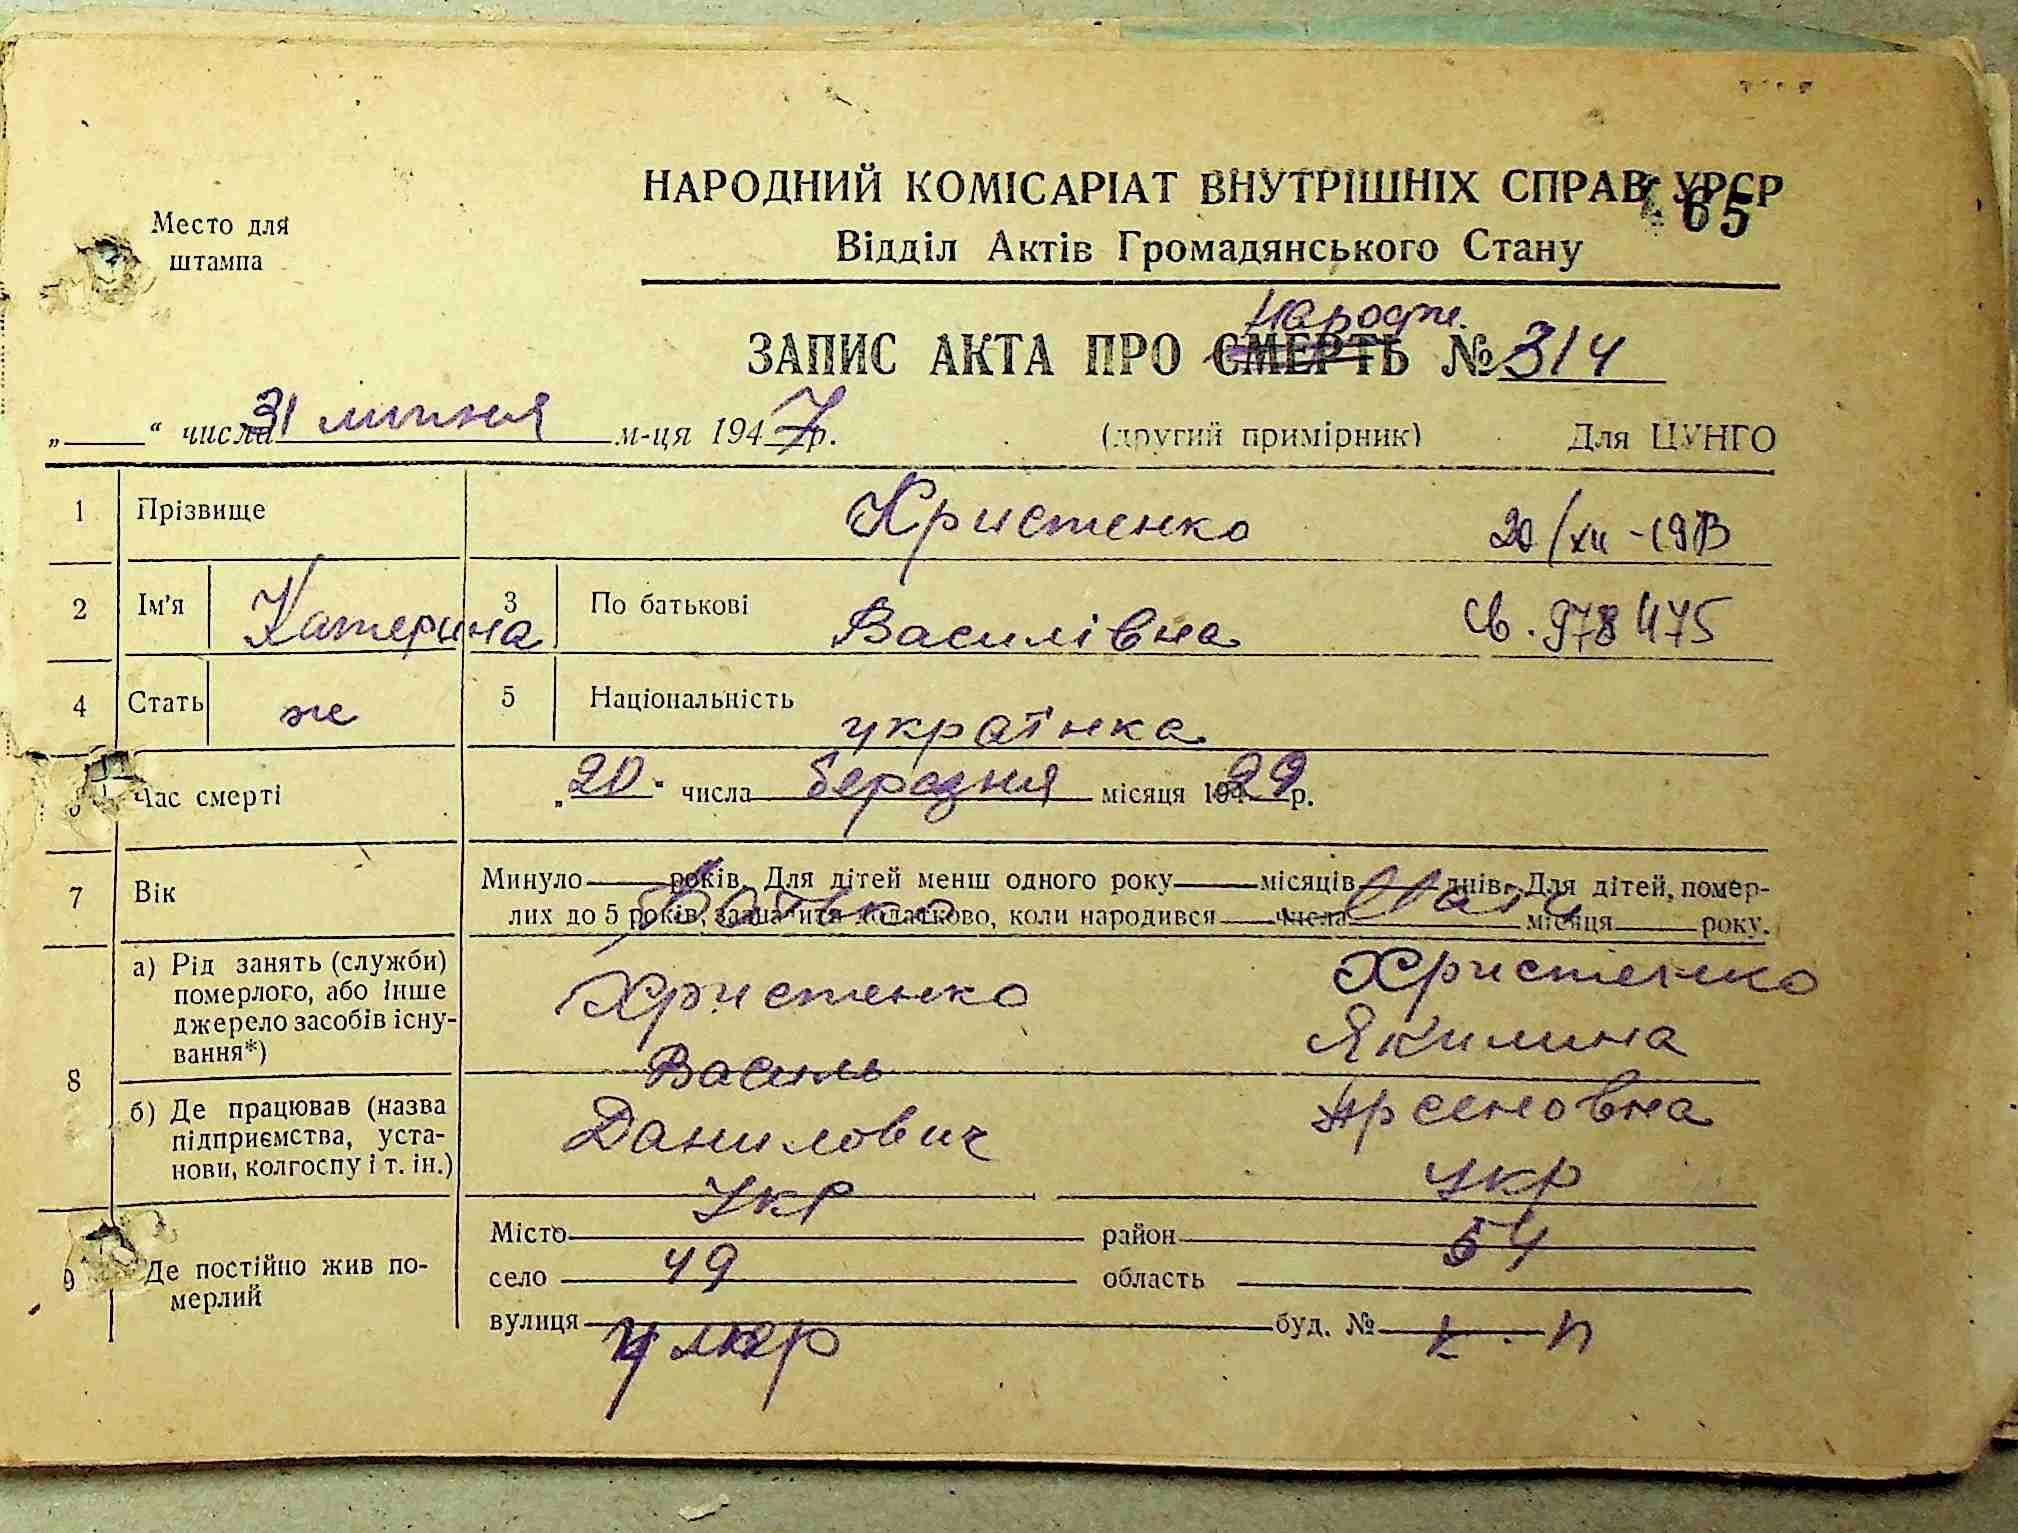 НАРОДНИЙ КОМІСАРІАТ ВНУТРІШНІХ СПРАВ УРСР
65
Место для
штампа
Відділ Актів Громадянського Стану
Народж.
ЗАПИС АКТА ПРО СМЕРТЬ № 314
„ “ числа 31 липня м-ця 1947 р. (другий примірник) Для ЦУНГО
1 Прізвище Христенко 20/XII-1973
2 Ім'я Катерина 3 По батькові Василівна Св. 978475
4 Стать ж 5 Національність українка
Час смерті „20" числа березня місяця 1929 р.
7 Вік Минуло років. Для дітей менш одного року місяців днів. Для дітей, помер-
лих до 5 років, зазначити додатково, коли народився числа місяця року.
Батько Мати
8 а) Рід занять (служби)
померлого, або інше
джерело засобів існу-
вання*)
Христенко Христенко
Василь Якилина
б) Де працював (назва
підприємства, уста-
нови, колгоспу і т. ін.)
Данилович Арсеновна
Укр Укр
9 Де постійно жив по-
мерлий
Місто район
49 54
село область
вулиця буд. №
умер к-п